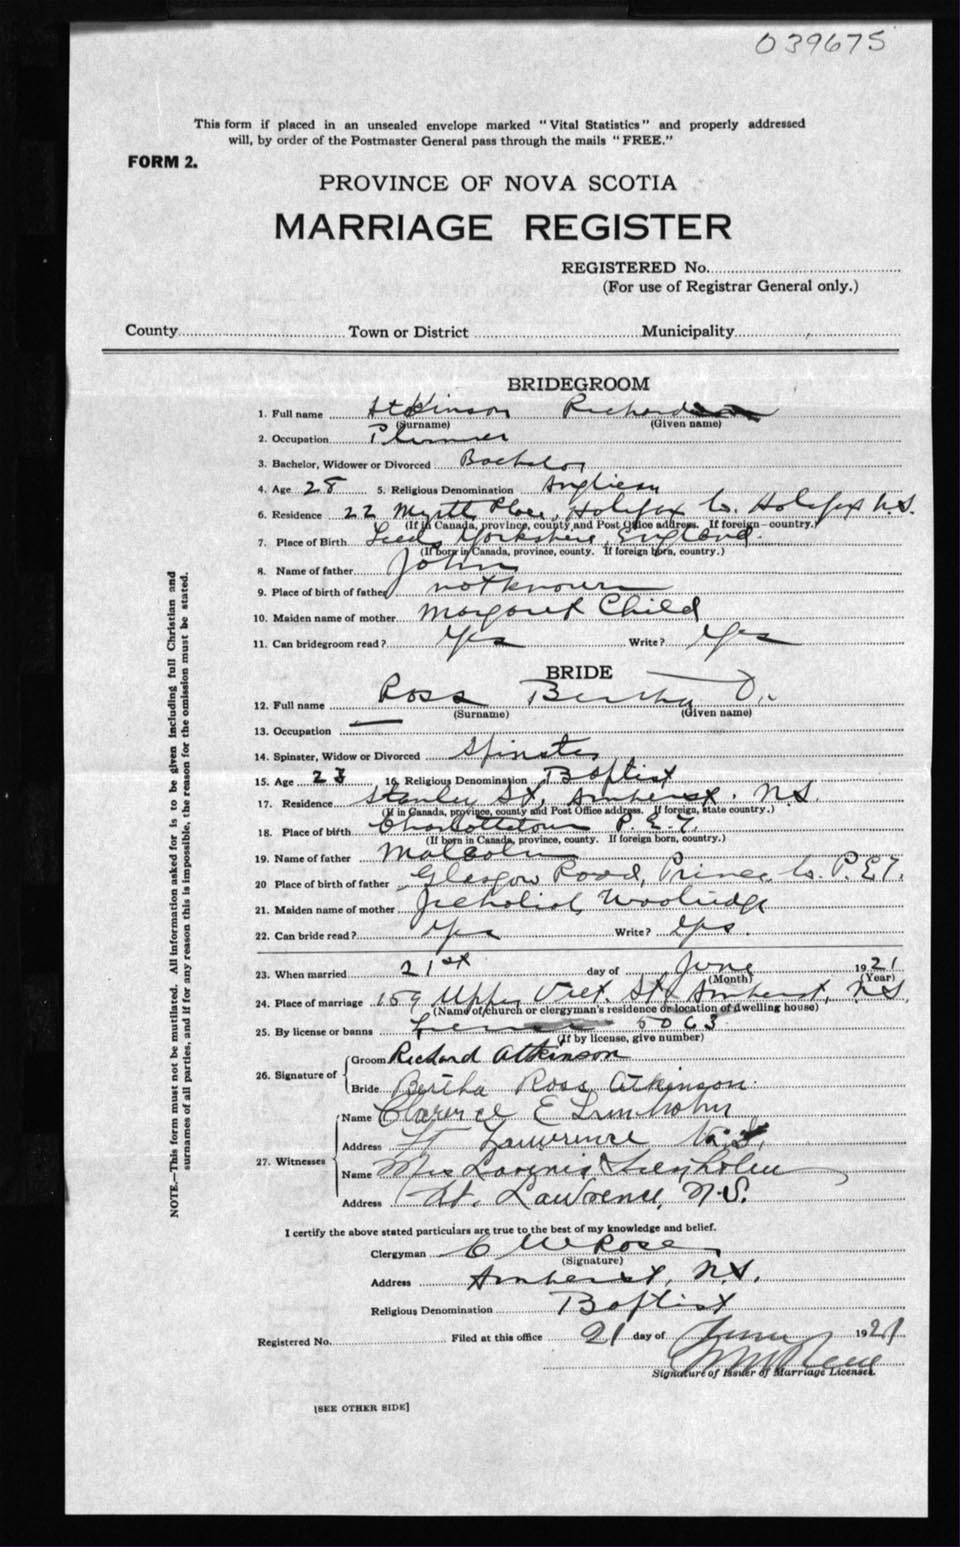 039675
This form if placed in an unsealed envelope marked "Vital Statistics" and properly addressed
will, by order of the Postmaster General pass through the mails "FREE."
FORM 2.
PROVINCE OF NOVA SCOTIA
MARRIAGE REGISTER
REGISTERED No.
(For use of Registrar General only.)
County Town or District Municipality
BRIDEGROOM
1. Full name Atkinson Richard
(Surname) (Given name)
2. Occupation Plumber
3. Bachelor, Widower or Divorced Bachelor
4. Age 28 5. Religious Denomination Anglican
6. Residence 22 Myrtle Place, Halifax Co. Halifax N.S.
(If in Canada, province, county and Post Office address. If foreign—country.)
7. Place of Birth Leeds Yorkshire, England.
(If born in Canada, province, county. If foreign born, country.)
8. Name of father John
9. Place of birth of father not known
10. Maiden name of mother Margaret Child
11. Can bridegroom read? Yes Write? Yes
BRIDE
12. Full name Ross Bertha
(Surname) (Given name)
13. Occupation —
14. Spinster, Widow or Divorced Spinster
15. Age 23 16. Religious Denomination Baptist
17. Residence Stanley St, Amherst. N.S.
(If in Canada, province, county and Post Office address. If foreign, state country.)
18. Place of birth Charlottetown P.E.I.
(If born in Canada, province, county. If foreign born, country.)
19. Name of father Malcolm
20 Place of birth of father Glasgow Road, Prince Co. P.E.I.
21. Maiden name of mother
22. Can bride read? Yes Write? Yes.
23. When married 21st day of June 1921
(Month) (Year)
24. Place of marriage 159 Upper Vict. St, Amherst, N.S.
(Name of church or clergyman's residence or location of dwelling house)
25. By license or banns License 5063
(If by license, give number)
26. Signature of Groom Richard Atkinson
Bride Bertha Ross Atkinson.
27. Witnesses Name Clarence E
Address Lawrence N.S.
Name Mrs
Address Lawrence, N.S.
I certify the above stated particulars are true to the best of my knowledge and belief.
Clergyman C W Rose
(Signature)
Address Amherst, N.S.
Religious Denomination Baptist
Registered No. Filed at this office 21 day of June 1921
Signature of Issuer of Marriage Licenses.
[SEE OTHER SIDE]
NOTE.—This form must not be mutilated. All information asked for is to be given including full Christian and
surnames of all parties, and if for any reason this is impossible, the reason for the omission must be stated.